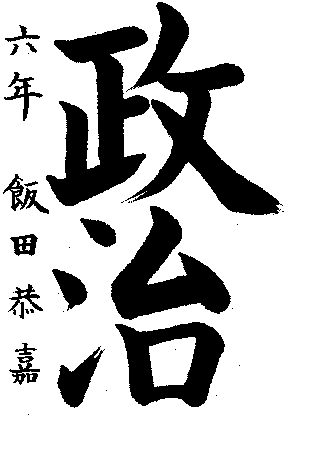 政治
六年 飯田恭嘉